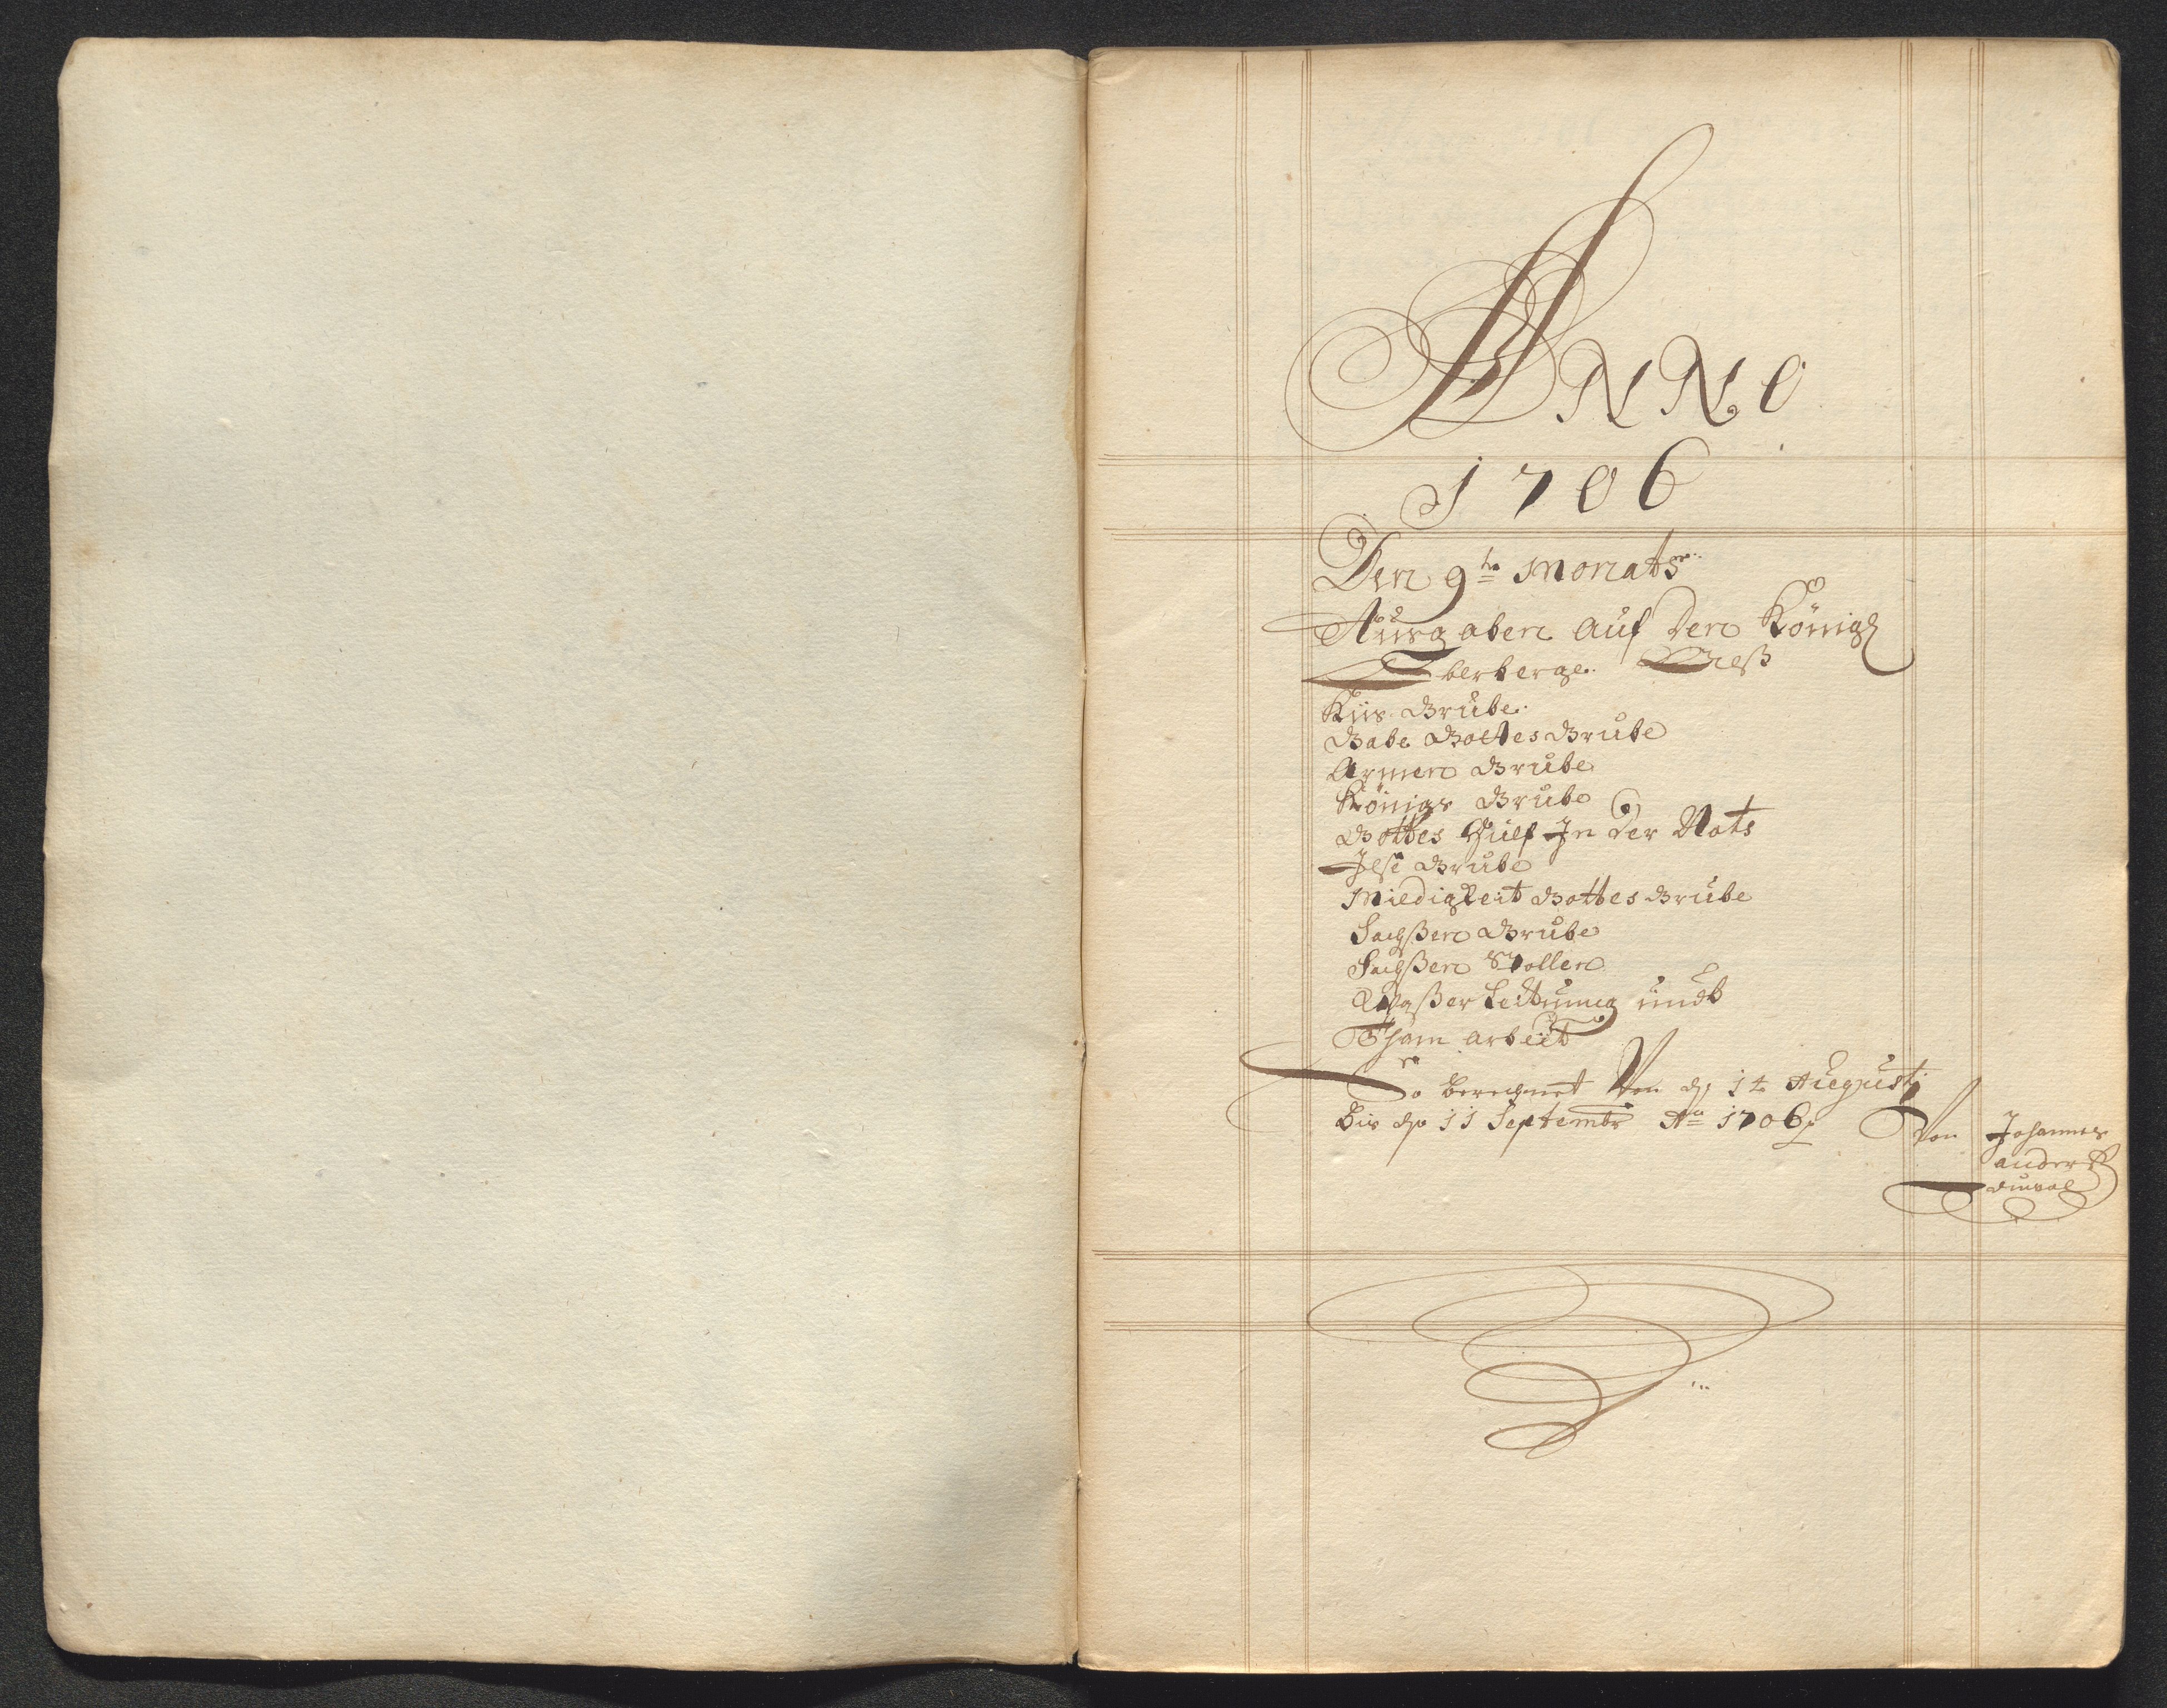 ANNO
1706
Den 9te Monats
Ausgaben auf Den Königl
Eberberge
Kiis Grube
Gabe Gottes Grube
Armen Grube
Königs Grube
Gottes Hülf In Der Nots
Grube
Miedigkeit Gottes Grube
Sachßen Grube
Sachßen Stollen
Waßer Leitung undt
Tham arbeit
So berechnet Von dn 14 Augusti
bis dn 11 Septembr Ao 1706
Von Johannes